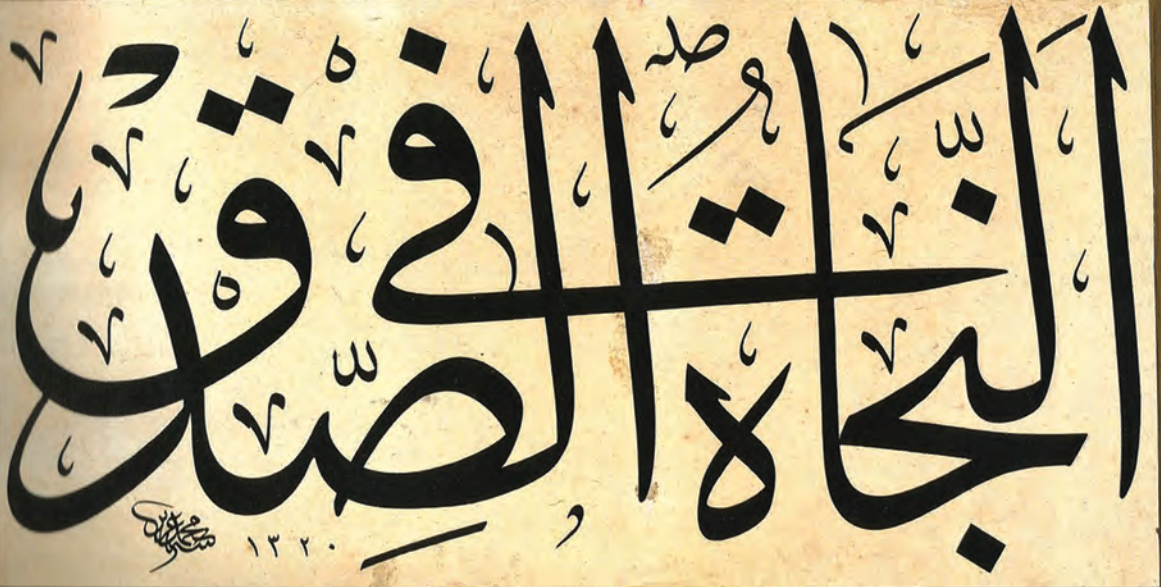 النَّجَاةُ فِي الصِّدْقِ
١٣٢٠